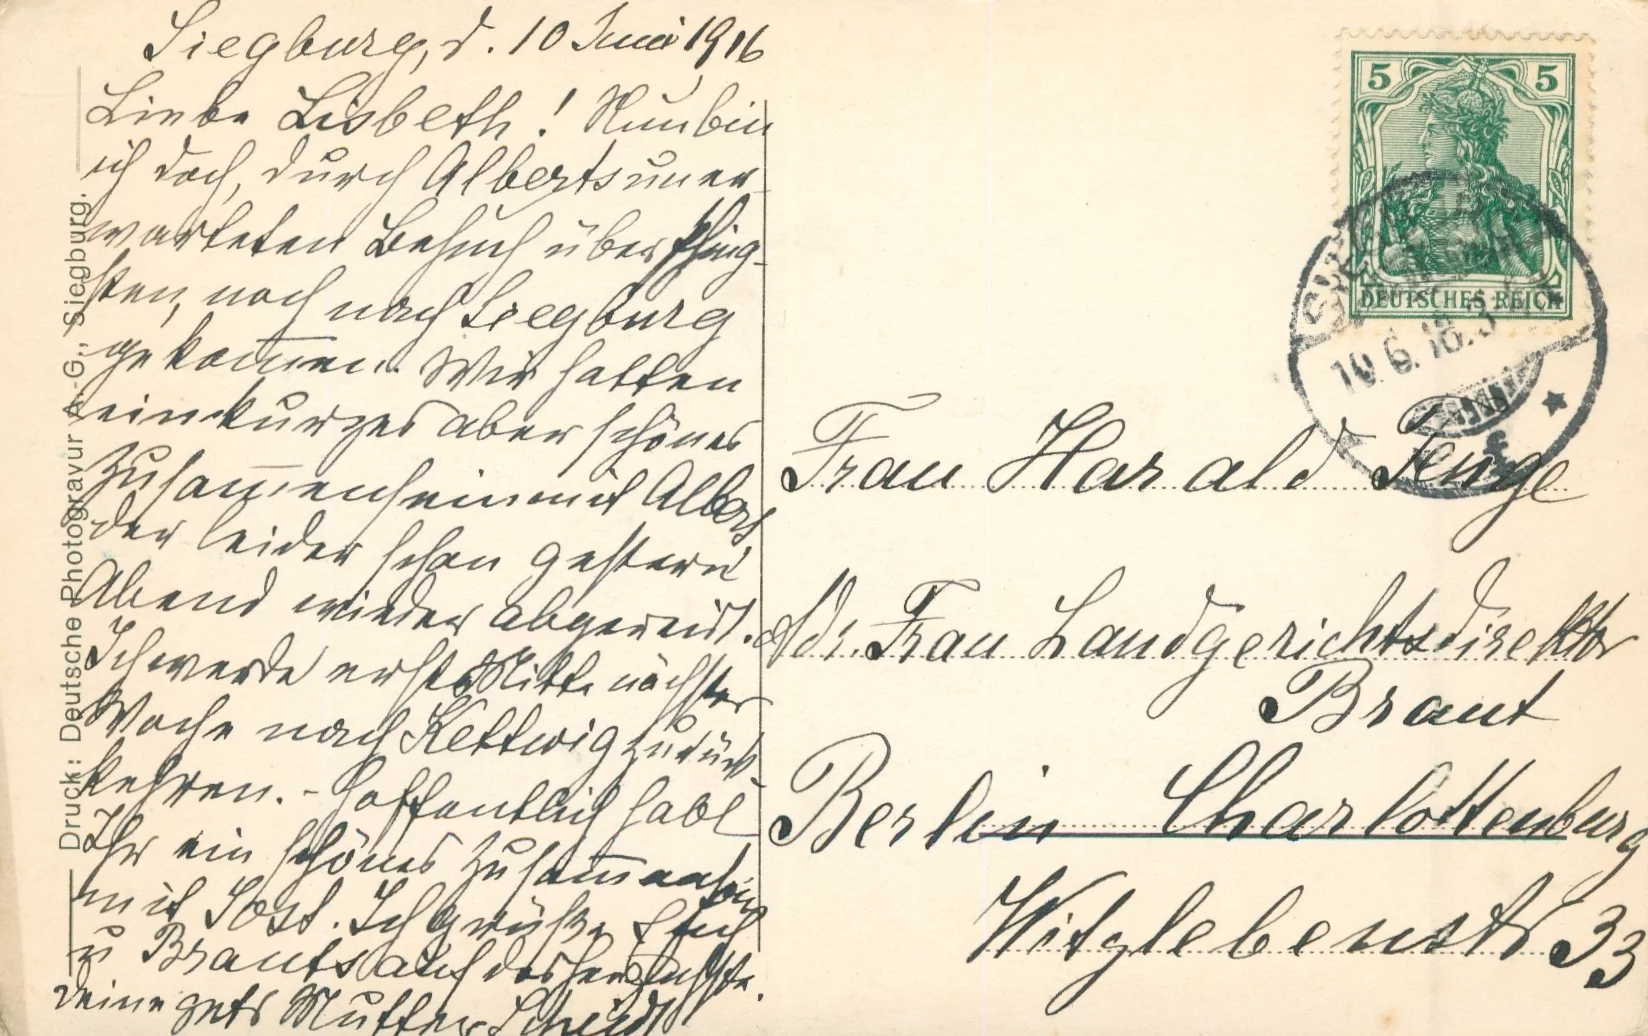 Siegburg, d. 10 Juni 1916
Liebe Lisbeth! Nun bin
ich doch, durch Alberts uner-
warteten Besuch über Pfing-
sten, noch nach Siegburg
gekommen. Wir hatten
ein kurzes aber schönes
Zusammensein mit Albert
der leider schon gestern
Abend wieder abgereist.
Ich werde erst Mitte nächster
Woche nach Kettwig zurück-
kehren. - Hoffentlich habt
Ihr ein schönes Zusammensein
mit Jost. Ich grüße Euch
u Brants auf das herzlichste.
Deine Mutter Scheidt
Druck: Deutsche Photogravur A.-G., Siegburg.
5 5
DEUTSCHES REICH
10.6.16.3
Frau Harald Tenge
Adr. Frau Landgerichtsdirektor
Brant
Berlin Charlottenburg
Witzlebenstr 33